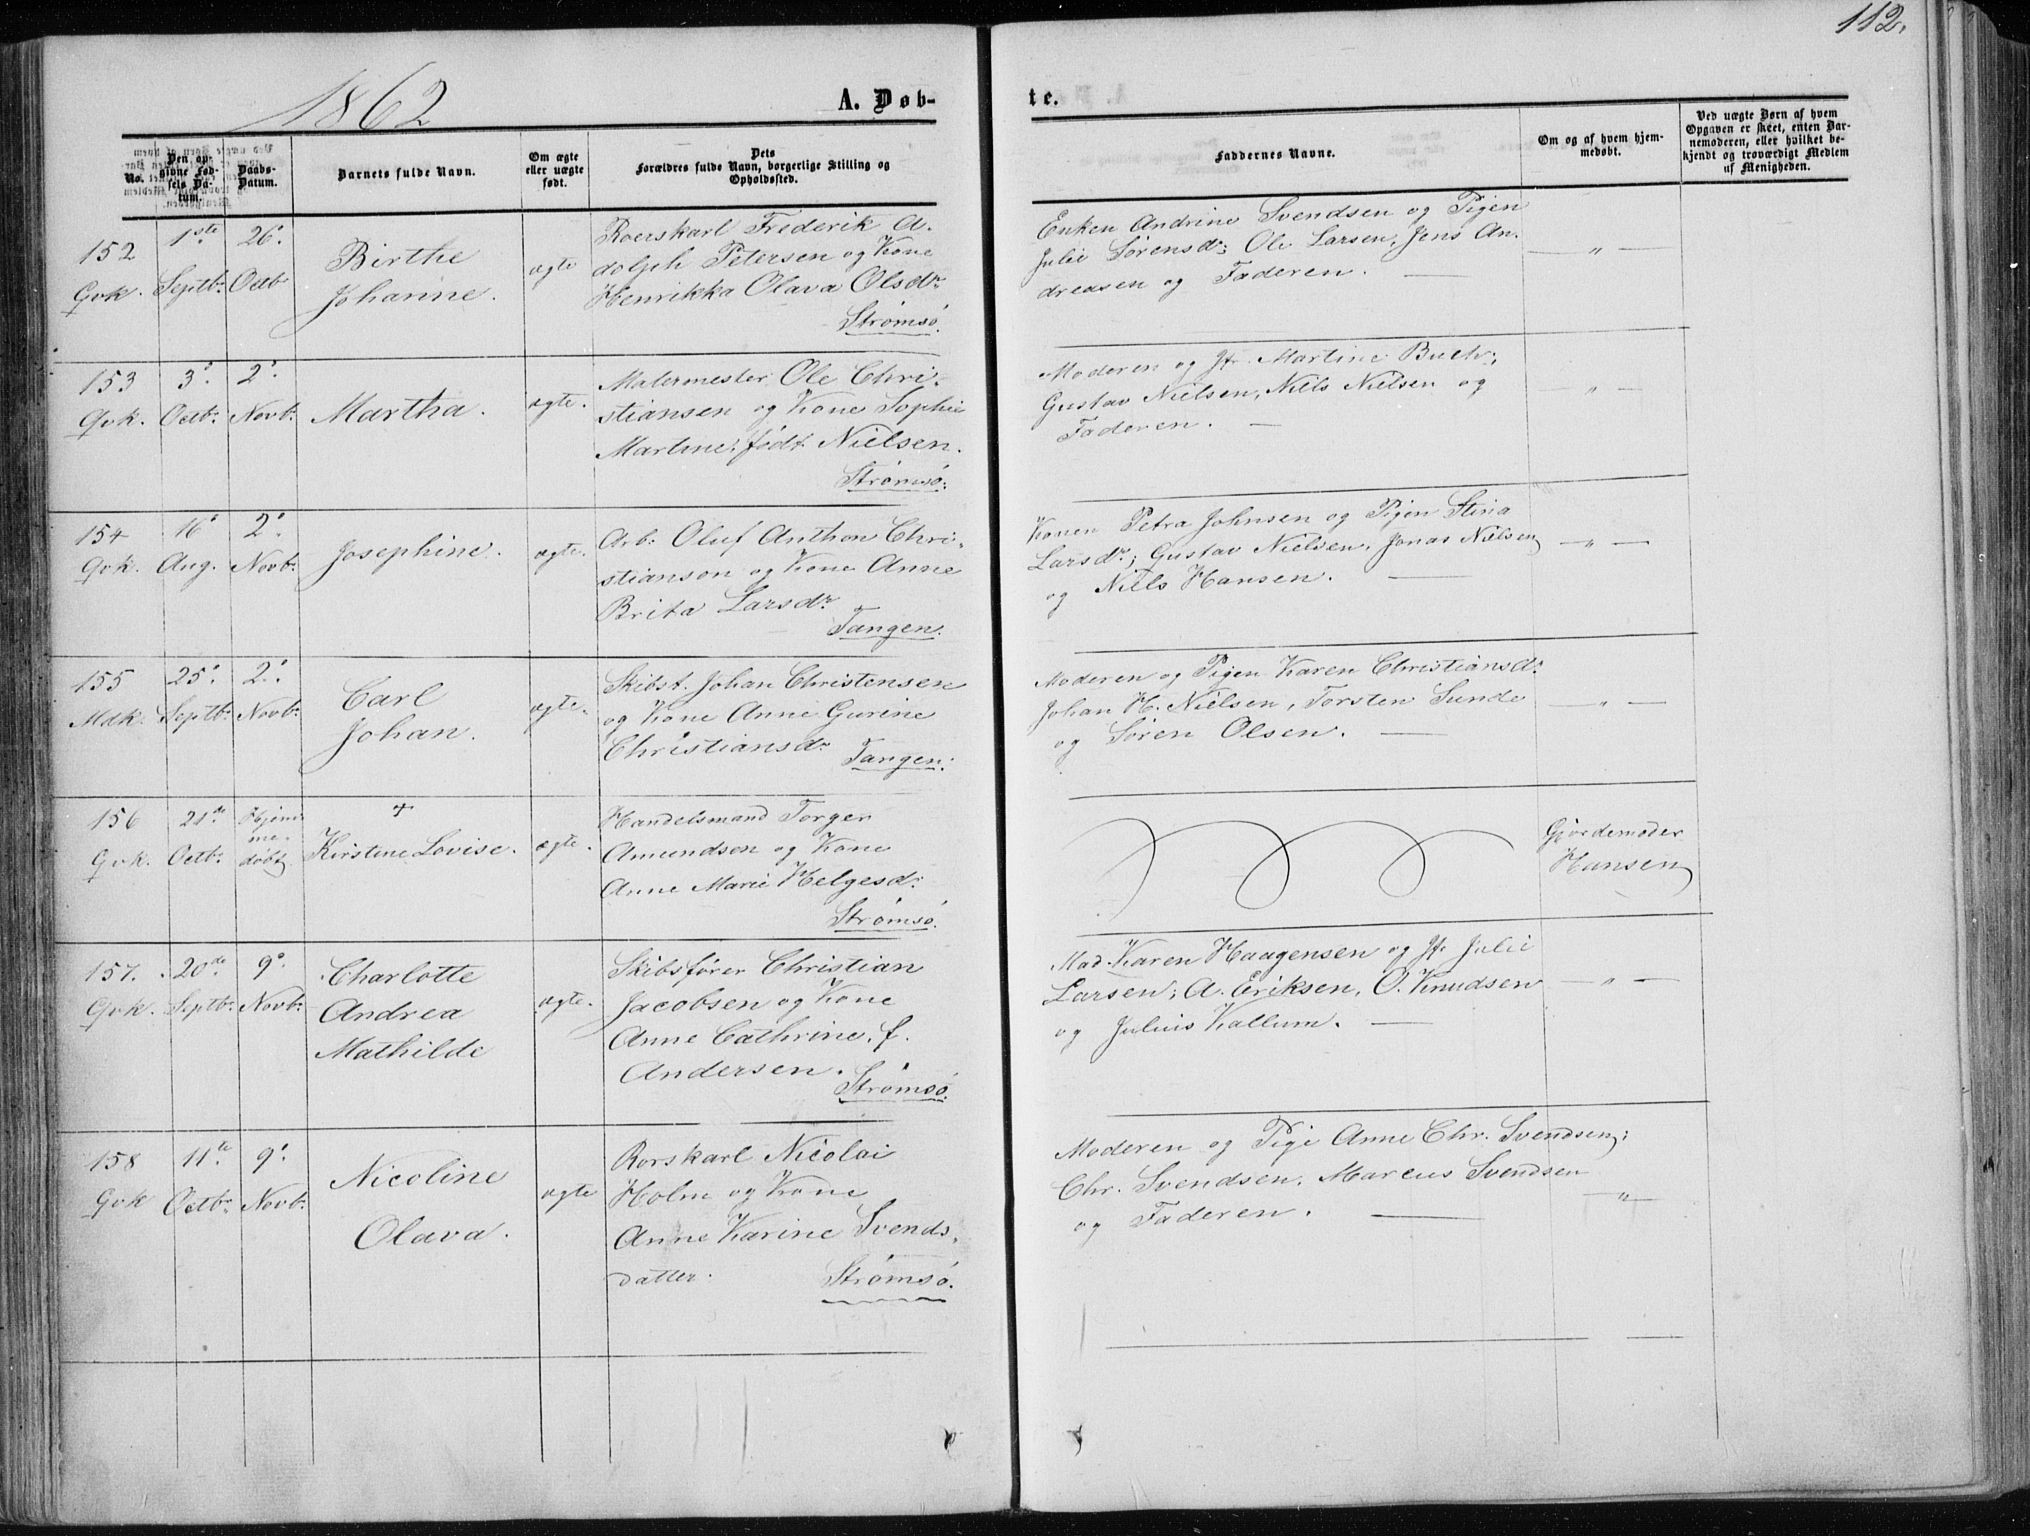 112.
1862
A. Døb-
te.
No.
Den opgivne Fødsels Datum.
Daabs-Datum.
Barnets fulde Navn.
Om ægte eller uægte født.
Dets Forældres fulde Navn, borgerlige Stilling og Opholdssted.
Faddernes Navne.
Om og af hvem hjemmedøbt.
Ved uægte Børn af hvem Opgaven er skeet, enten Barnemoderen, eller hvilket bekjendt og troværdigt Medlem af Menigheden.
152 Qvk.
1ste Septbr.
26. Octbr
Birthe
Johanne.
ægte
Roerskarl Frederik A-
dolph Petersen og Kone
Henrikka Olava Olsdr.
Strømsø.
Enken Andrine Svendsen og Pigen
Julie Sørensdr; Ole Larsen, Jens An-
dreasen og Faderen. —
— „ —
153 Qvk.
3. Octbr.
2. Novbr.
Martha.
ægte.
Malermester Ole Chri-
stiansen og Kone Sophie
Martine, født Nielsen.
Strømsø.
Moderen og Jfr. Martine Buch;
Gustav Nielsen, Niels Nielsen og
Faderen. —
— „ —
154 Qvk.
16. Aug.
2. Novbr.
Josephine.
ægte.
Arb. Oluf Anthon Chri-
stianson og Kone Anne
Brita Larsdr.
Tangen.
Konen Petra Johnsen og Pigen Stina
Larsdr; Gustav Nielsen, Jonas Nielsen
og Niels Hansen. —
— „ —
155 Mdk.
25. Septbr.
2. Novbr.
Carl
Johan.
ægte.
Skibst. Johan Christensen
og Kone Anne Gurine
Christiansdr.
Tangen.
Moderen og Pigen Karen Christiansdr.
Johan H. Nielsen, Torsten Sunde
og Søren Olsen. —
— „ —
156 Qvk.
21de Octbr.
Hjem-
me-
døbt
+
Kirstine Lovise.
ægte.
Handelsmand Torger
Amundsen og Kone
Anne Marie Helgesd.
Strømsø.
Gjordemoder
Hansen
157. Qvk.
20de Septbr.
9. Novbr.
Charlotte
Andrea
Mathilde
ægte.
Skibsfører Christian
Jacobsen og Kone
Anne Cathrine, f.
Andersen.
Strømsø.
Mad. Karen Haagensen og Jfr. Julie
Larsen; A. Eriksen, O. Knudsen
og Julius Kallum. —
— „ —
158 Qvk
11te Octbr.
9. Novbr.
Nicoline
Olava.
ægte
Rorskarl Nicolai
Holm og Kone
Anne Karine Svends-
datter.
Strømsø.
Moderen og Pige Anne Chr. Svendsen;
Chr. Svendsen, Marcus Svendsen
og Faderen. —
— „ —